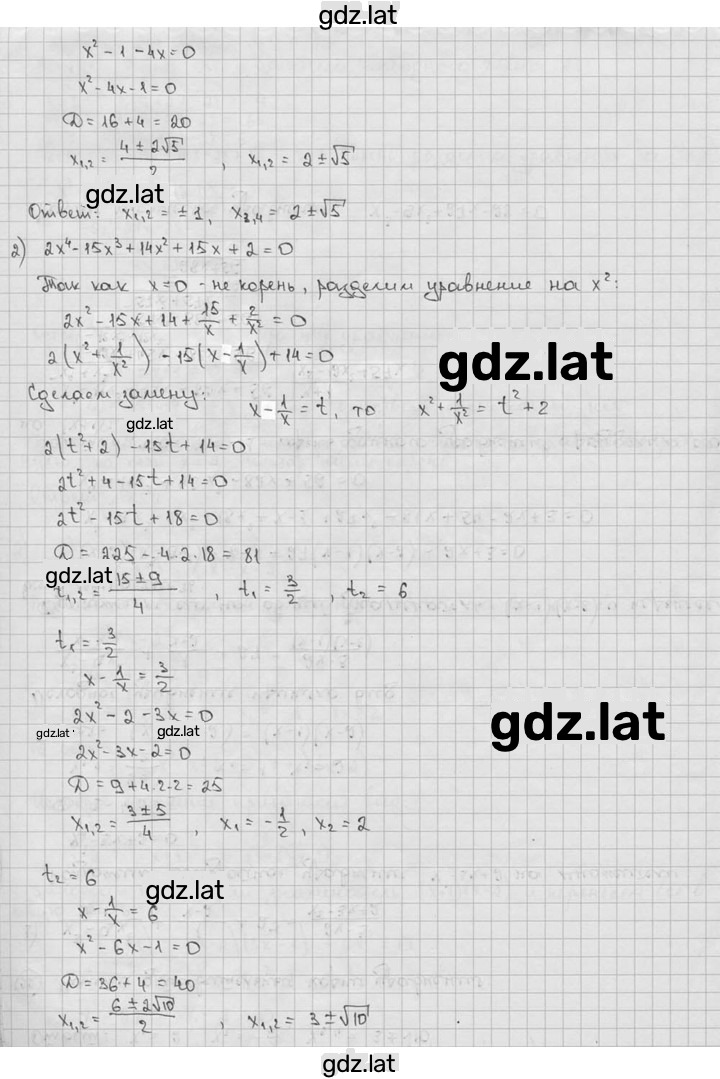 gdz.lat
x² - 1 - 4x = 0
x² - 4x - 1 = 0
D = 16 + 4 = 20
x₁,₂ = (4 ± 2√5)/2 , x₁,₂ = 2 ± √5
gdz.lat
Ответ: x₁,₂ = ± 1, x₃,₄ = 2 ± √5
2) 2x⁴ - 15x³ + 14x² + 15x + 2 = 0
Так как x = 0 - не корень, разделим уравнение на x²:
2x² - 15x + 14 + 15/x + 2/x² = 0
2(x² + 1/x²) - 15(x - 1/x) + 14 = 0
gdz.lat
Сделаем замену: x - 1/x = t, то x² + 1/x² = t² + 2
gdz.lat
2(t² + 2) - 15t + 14 = 0
2t² + 4 - 15t + 14 = 0
2t² - 15t + 18 = 0
D = 225 - 4·2·18 = 81
gdz.lat
t₁,₂ = (15 ± 9)/4 , t₁ = 3/2 , t₂ = 6
t₁ = 3/2
x - 1/x = 3/2
2x² - 2 - 3x = 0
gdz.lat
gdz.lat gdz.lat
2x² - 3x - 2 = 0
D = 9 + 4·2·2 = 25
x₁,₂ = (3 ± 5)/4 , x₁ = -1/2 , x₂ = 2
t₂ = 6
gdz.lat
x - 1/x = 6
x² - 6x - 1 = 0
D = 36 + 4 = 40
x₁,₂ = (6 ± 2√10)/2 , x₁,₂ = 3 ± √10
gdz.lat